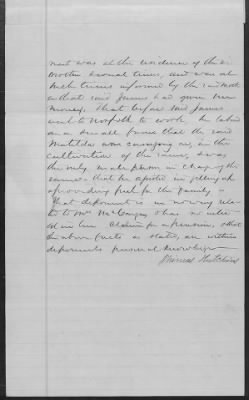 ment was at the residence of the s.
Mother several times, and was at
such times informed by the said Moth
er that said James had given her
money; That before said James
went to Norfolk to work he labored
on a small farm that the said
Matilda was occupying in the
cultivation of the same, & was
the only male person in charge of the
same - that he assisted in getting &
providing fuel for the family -
That deponent is in no way rela
ted to Mrs & has no inter
est in her Claim for a pension; & that
the above facts as stated, are within
deponents personal knowledge -
Hutchins